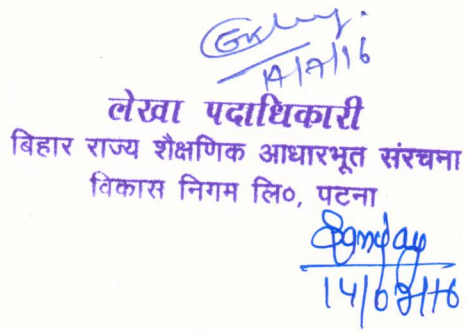 14/7/16
लेखा पदाधिकारी
बिहार राज्य शैक्षणिक आधारभूत संरचना
विकास निगम लि०, पटना
14/07/16